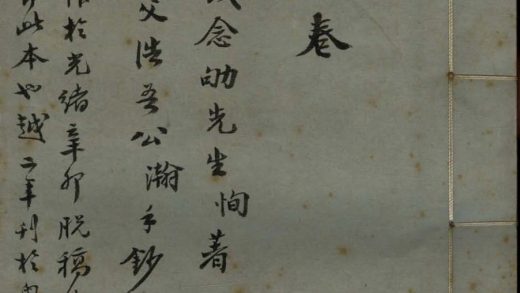 卷
念劬先生恂著
父浩吾公瀚手鈔
於光緒辛卯脫稿
此本也越二年刊於